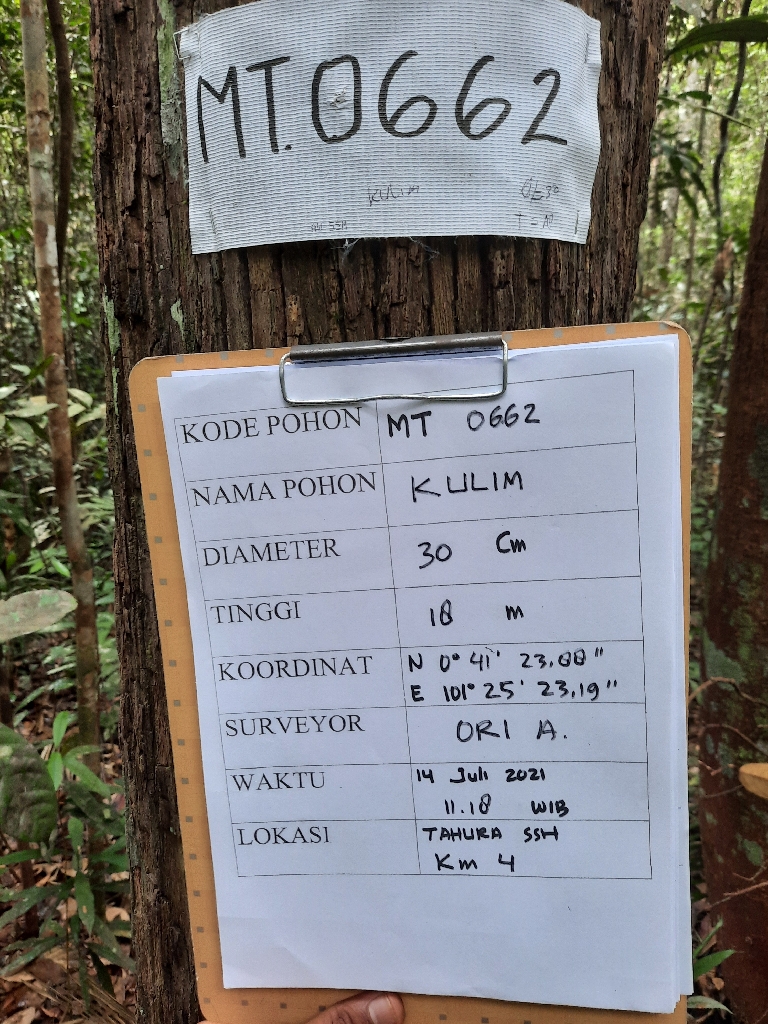 MT.0662
KULIM
KODE POHON MT 0662
NAMA POHON KULIM
DIAMETER 30 Cm
TINGGI 18 m
KOORDINAT N 0° 41' 23,88"
E 101° 25' 23,19"
SURVEYOR ORI A.
WAKTU 14 Juli 2021
11.18 WIB
LOKASI TAHURA SSH
Km 4